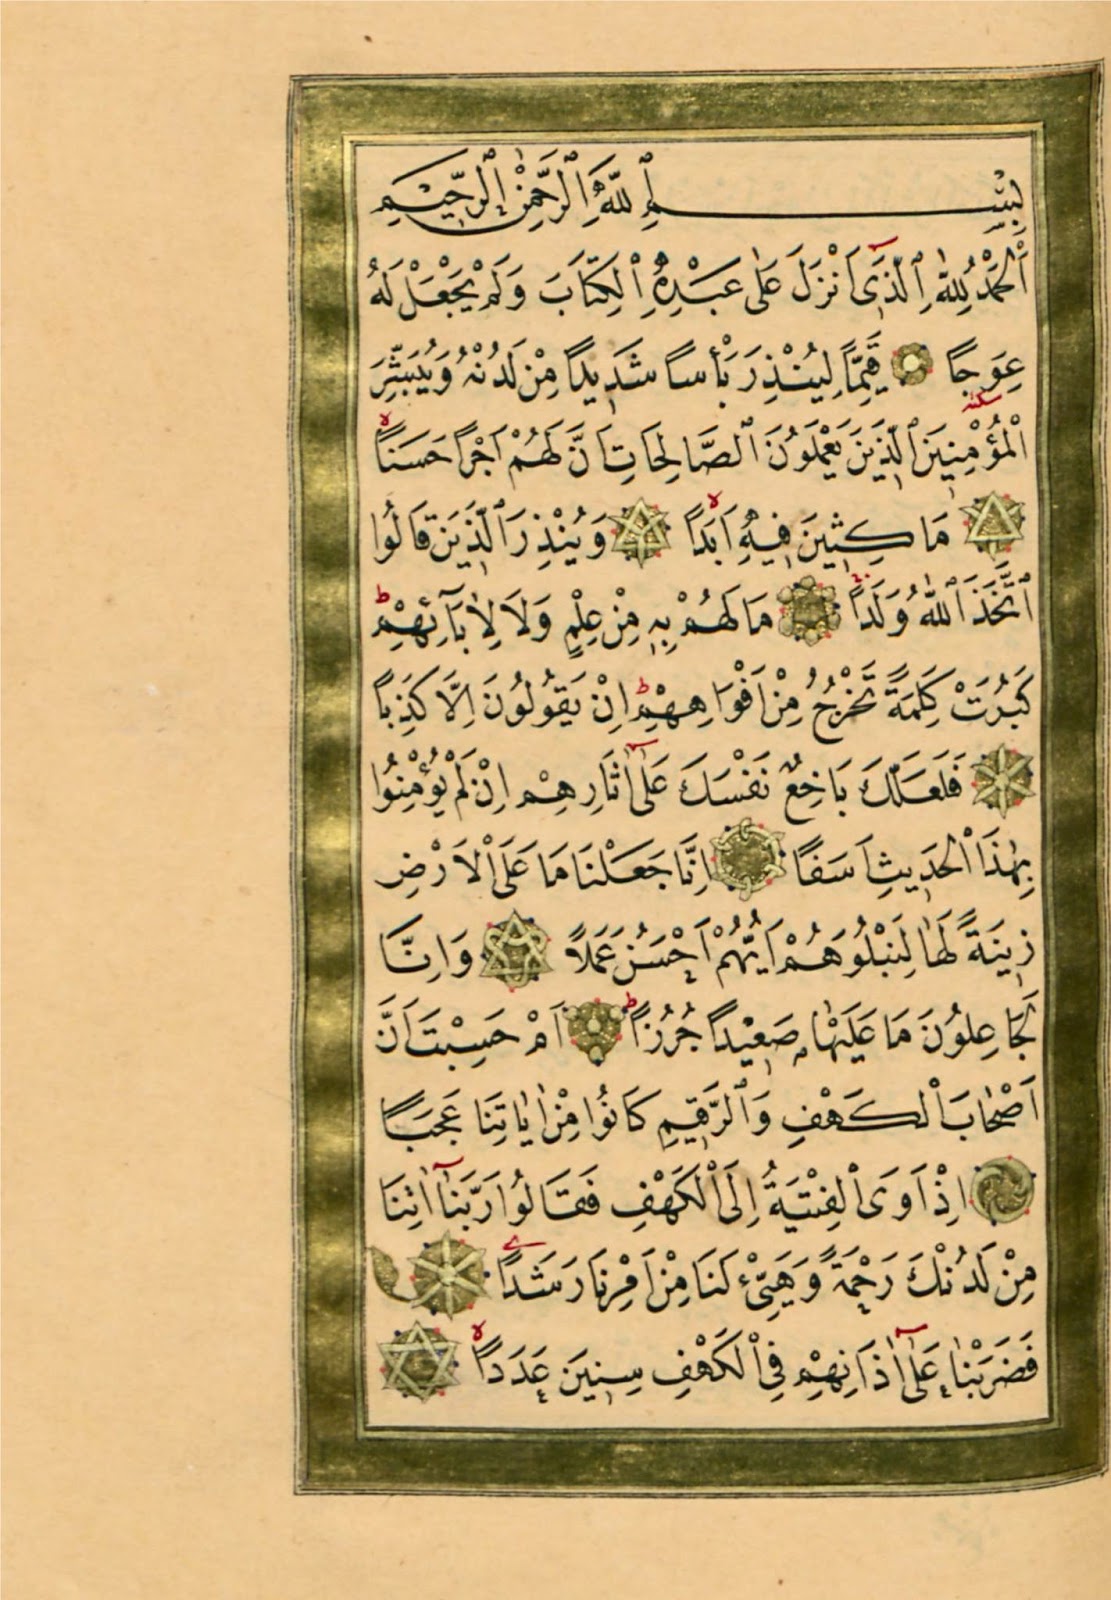 بِسْمِ اللّٰهِ الرَّحْمٰنِ الرَّحِيمِ
اَلْحَمْدُ لِلّٰهِ الَّذ۪ٓي اَنْزَلَ عَلٰى عَبْدِهِ الْكِتَابَ وَلَمْ يَجْعَلْ لَهُ
عِوَجًا قَيِّمًا لِيُنْذِرَ بَأْسًا شَد۪يدًا مِنْ لَدُنْهُ وَيُبَشِّرَ
الْمُؤْمِن۪ينَ الَّذ۪ينَ يَعْمَلُونَ الصَّالِحَاتِ اَنَّ لَهُمْ اَجْرًا حَسَنًا
مَاكِث۪ينَ ف۪يهِ اَبَدًا وَيُنْذِرَ الَّذ۪ينَ قَالُوا
اتَّخَذَ اللّٰهُ وَلَدًا مَا لَهُمْ بِه۪ مِنْ عِلْمٍ وَلَا لِاٰبَآئِهِمْ
كَبُرَتْ كَلِمَةً تَخْرُجُ مِنْ اَفْوَاهِهِمْ اِنْ يَقُولُونَ اِلَّا كَذِبًا
فَلَعَلَّكَ بَاخِعٌ نَفْسَكَ عَلٰٓى اٰثَارِهِمْ اِنْ لَمْ يُؤْمِنُوا
بِهٰذَا الْحَد۪يثِ اَسَفًا اِنَّا جَعَلْنَا مَا عَلَى الْاَرْضِ
ز۪ينَةً لَهَا لِنَبْلُوَهُمْ اَيُّهُمْ اَحْسَنُ عَمَلًا وَاِنَّا
لَجَاعِلُونَ مَا عَلَيْهَا صَع۪يدًا جُرُزًا اَمْ حَسِبْتَ اَنَّ
اَصْحَابَ الْكَهْفِ وَالرَّق۪يمِ كَانُوا مِنْ اٰيَاتِنَا عَجَبًا
اِذْ اَوَى الْفِتْيَةُ اِلَى الْكَهْفِ فَقَالُوا رَبَّنَآ اٰتِنَا
مِنْ لَدُنْكَ رَحْمَةً وَهَيِّئْ لَنَا مِنْ اَمْرِنَا رَشَدًا
فَضَرَبْنَا عَلٰٓى اٰذَانِهِمْ فِي الْكَهْفِ سِن۪ينَ عَدَدًا